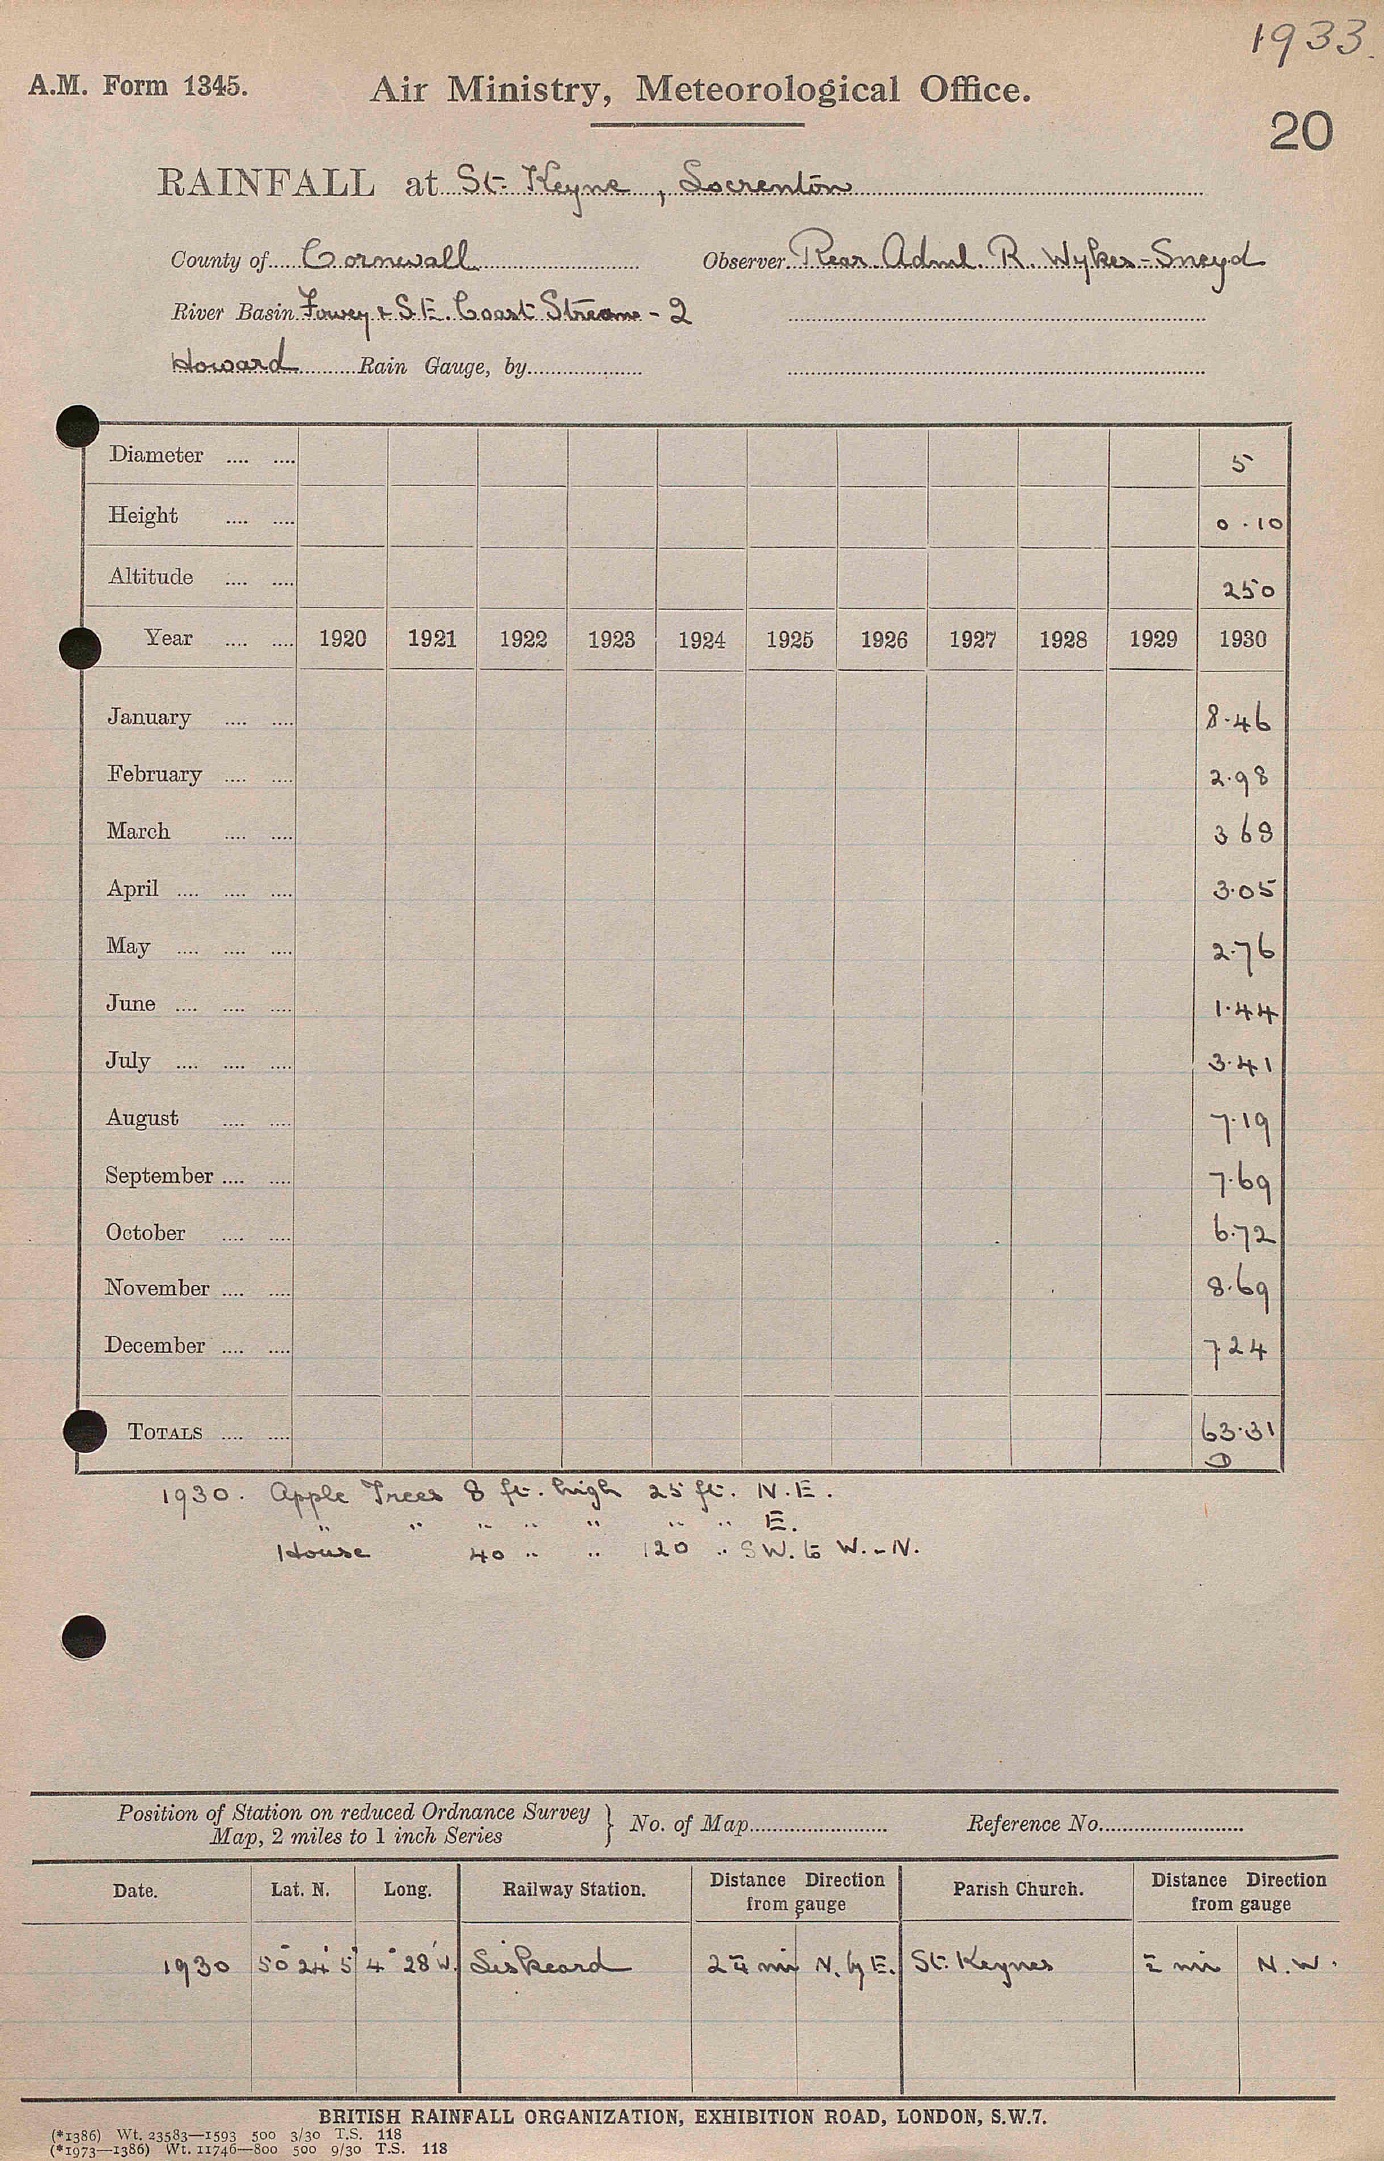 1933.
A.M. Form 1345. Air Ministry, Meteorological Office.
20
RAINFALL at St. Keyne, Locrenton
County of Cornwall Observer Rear Adml. R. Wykes-Sneyd
River Basin Fowey & S.E. Coast Streams - 2
Howard Rain Gauge, by
Diameter .... .... 5
Height .... .... 0.10
Altitude .... .... 250
Year .... .... 1920 1921 1922 1923 1924 1925 1926 1927 1928 1929 1930
January .... .... 8.46
February .... .... 2.98
March .... .... 3 68
April .... .... .... 3.05
May .... .... .... 2.76
June .... .... .... 1.44
July .... .... .... 3.41
August .... .... 7.19
September .... .... 7.69
October .... .... 6.72
November .... .... 8.69
December .... .... 7.24
TOTALS .... .... 63.31
D
1930. Apple Trees 8 ft. high 25 ft. N.E.
" " " " " " " E.
House 40 " " 120 " SW. to W.-N.
Position of Station on reduced Ordnance Survey } No. of Map Reference No.
Map, 2 miles to 1 inch Series
Date. Lat. N. Long. Railway Station. Distance Direction from gauge Parish Church. Distance Direction from gauge
1930 50° 24' 5" 4° 28' W. Liskeard mi N. by E. St. Keynes mi N.W.
BRITISH RAINFALL ORGANIZATION, EXHIBITION ROAD, LONDON, S.W.7.
(*1386) Wt. 23583—1593 500 3/30 T.S. 118
(*1973—1386) Wt. 11746—800 500 9/30 T.S. 118